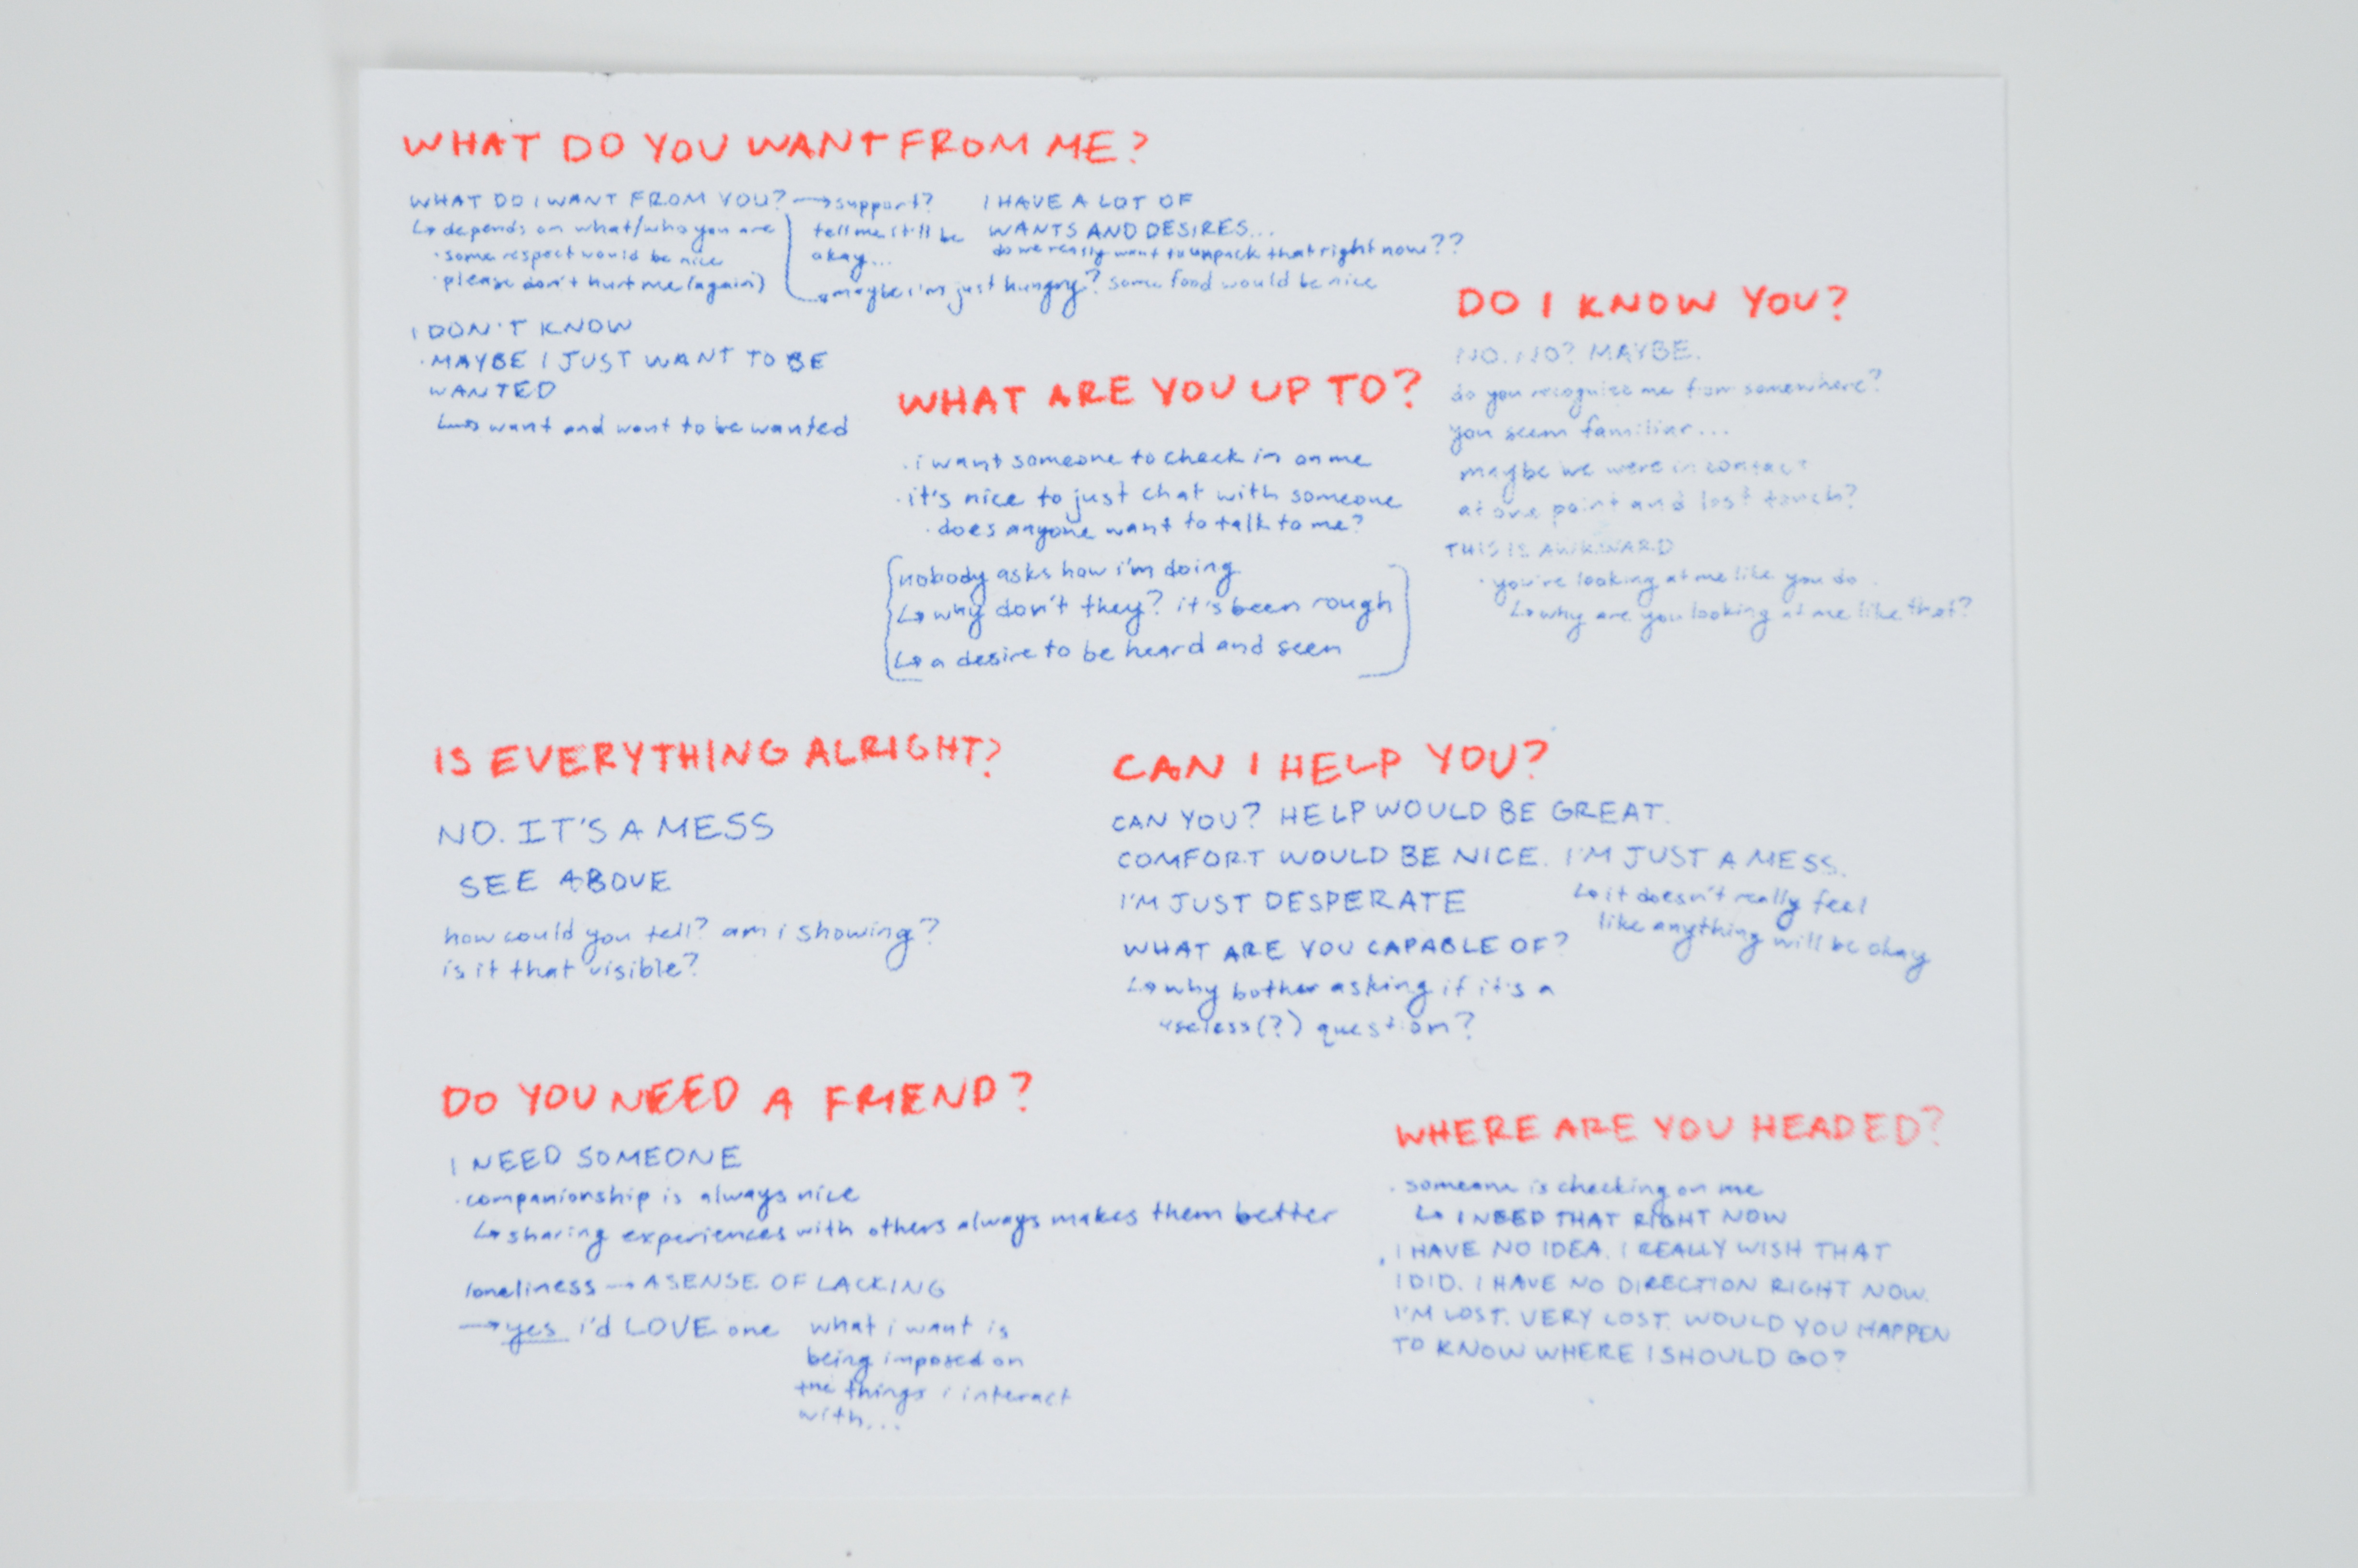 WHAT DO YOU WANT FROM ME?
WHAT DO I WANT FROM YOU? → support?
↳ depends on what/who you are
· some respect would be nice
· please don't hurt me (again)
tell me it'll be
okay...
I HAVE A LOT OF
WANTS AND DESIRES...
do we really want to unpack that right now??
→ maybe i'm just hungry? some food would be nice
I DON'T KNOW
· MAYBE I JUST WANT TO BE
WANTED
↳ want and want to be wanted
DO I KNOW YOU?
NO. NO? MAYBE.
do you recognize me from somewhere?
you seem familiar...
maybe we were in contact
at one point and lost touch?
THIS IS AWKWARD
· you're looking at me like you do
↳ why are you looking at me like that?
WHAT ARE YOU UP TO?
· i want someone to check in on me
· it's nice to just chat with someone
· does anyone want to talk to me?
nobody asks how i'm doing
↳ why don't they? it's been rough
↳ a desire to be heard and seen
IS EVERYTHING ALRIGHT?
NO. IT'S A MESS
SEE ABOVE
how could you tell? am i showing?
is it that visible?
CAN I HELP YOU?
CAN YOU? HELP WOULD BE GREAT.
COMFORT WOULD BE NICE. I'M JUST A MESS.
↳ it doesn't really feel
like anything will be okay
I'M JUST DESPERATE
WHAT ARE YOU CAPABLE OF?
↳ why bother asking if it's a
useless(?) question?
DO YOU NEED A FRIEND?
I NEED SOMEONE
· companionship is always nice
↳ sharing experiences with others always makes them better
loneliness → A SENSE OF LACKING
→ yes i'd LOVE one
what i want is
being imposed on
the things i interact
with...
WHERE ARE YOU HEADED?
· someone is checking on me
↳ I NEED THAT RIGHT NOW
· I HAVE NO IDEA. I REALLY WISH THAT
I DID. I HAVE NO DIRECTION RIGHT NOW.
I'M LOST. VERY LOST. WOULD YOU HAPPEN
TO KNOW WHERE I SHOULD GO?